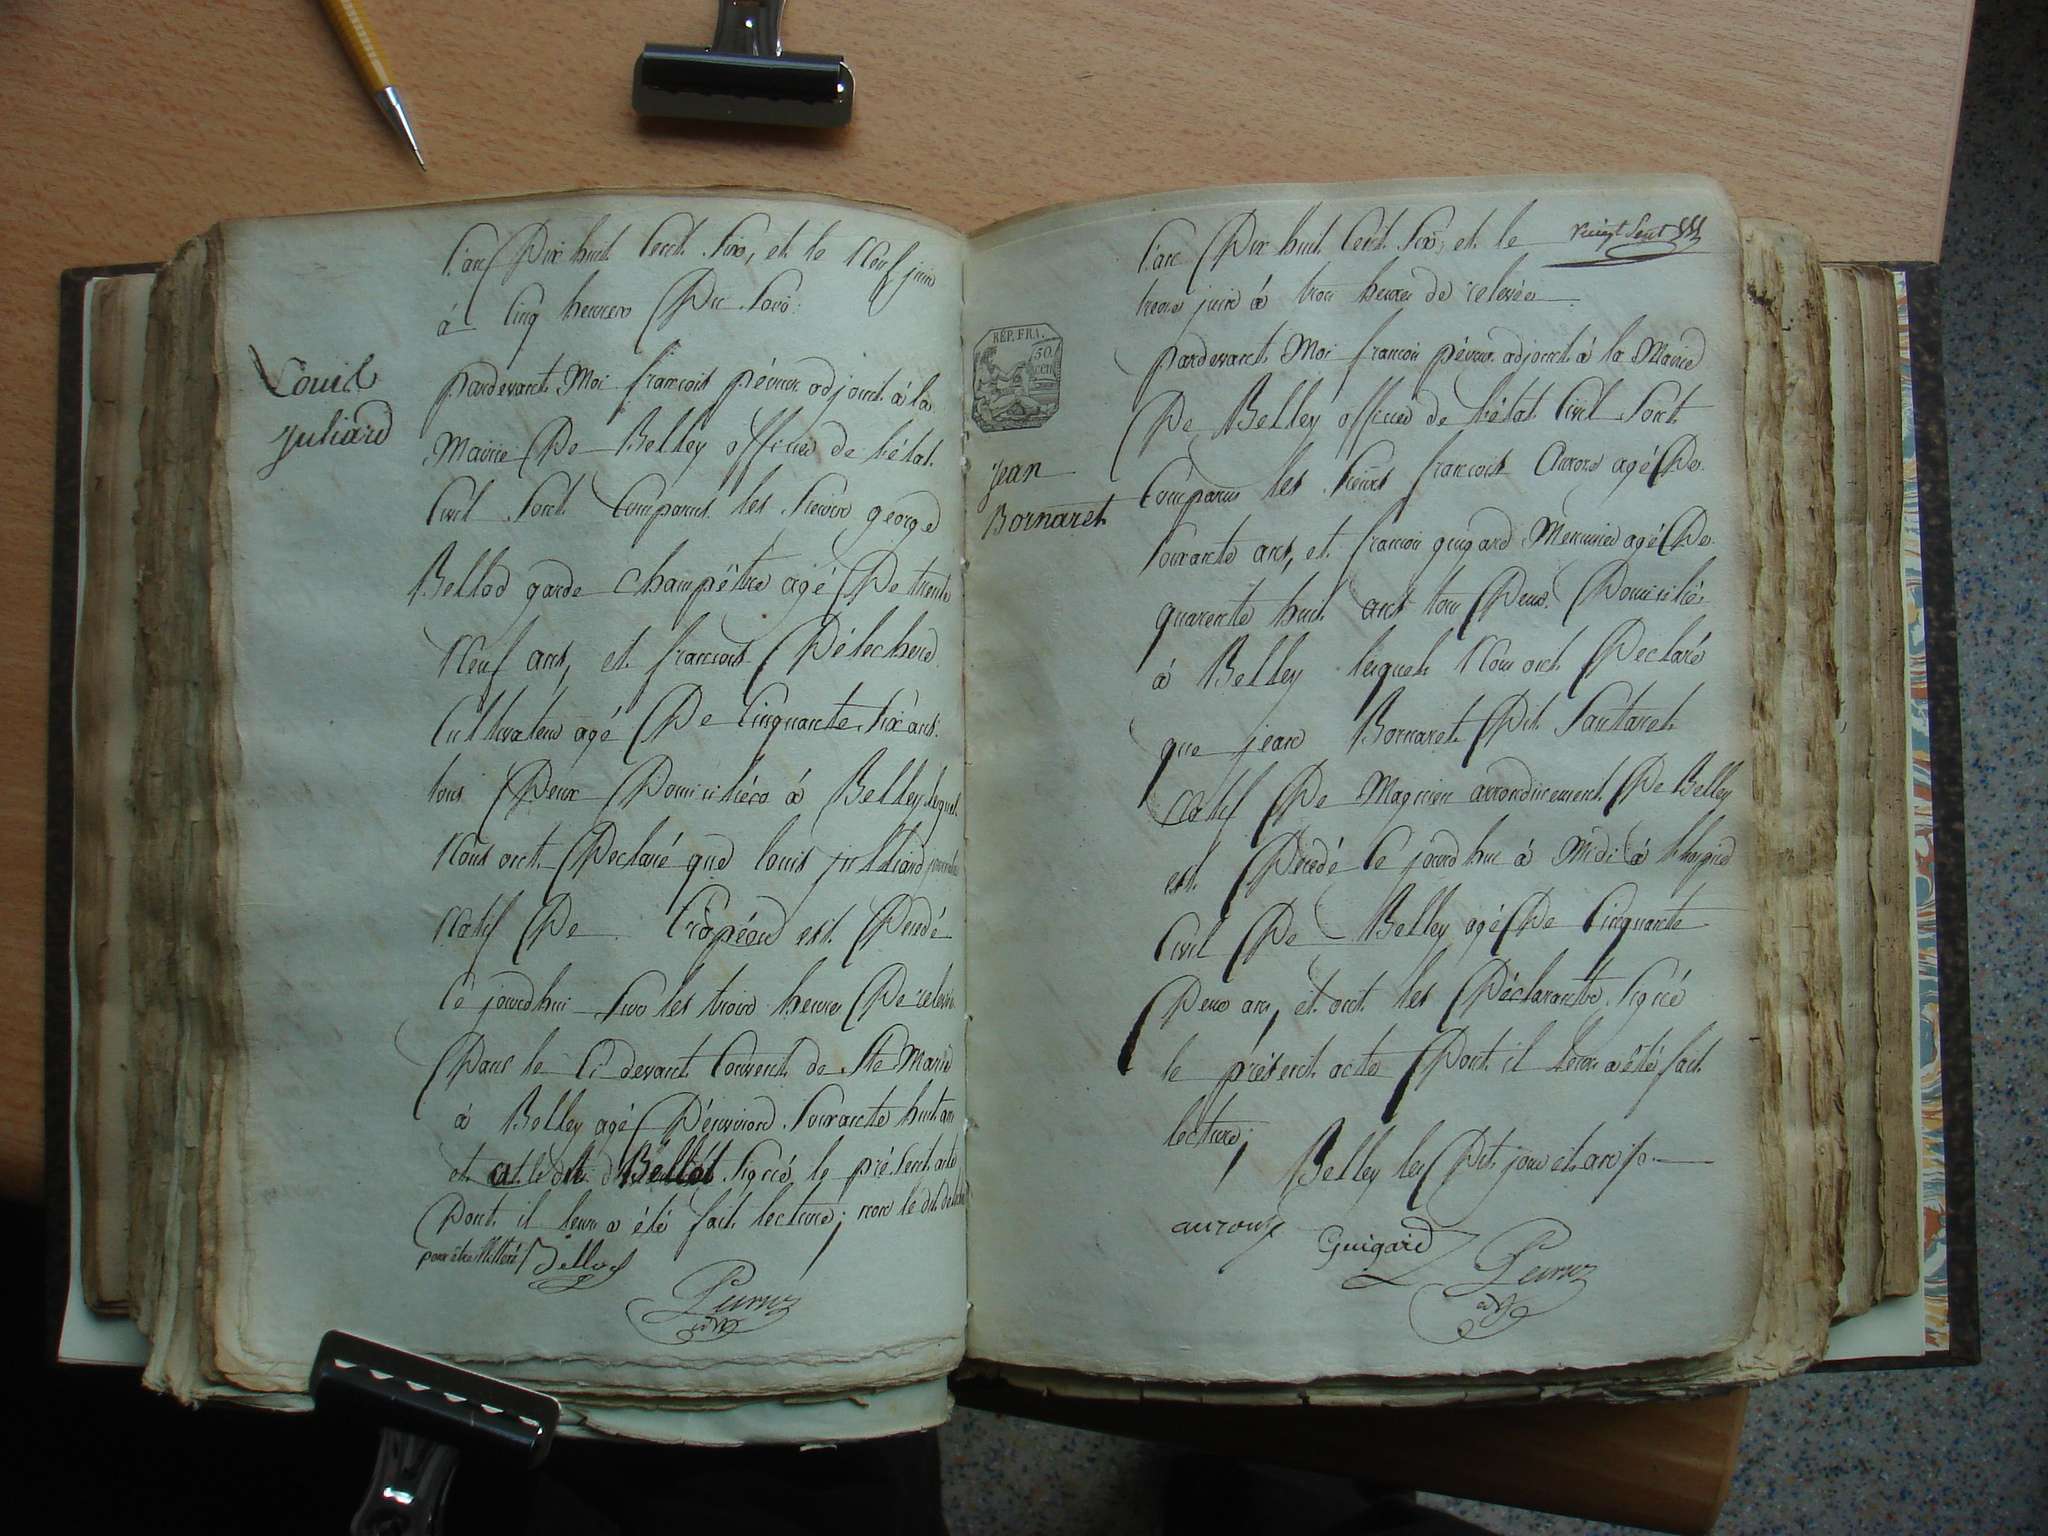 Louis
Juliard
L'an Dix huit Cent Six, et le Neuf juin
à Cinq heures Du Soir
pardevant Moi françois pévrux adjoint à la
Mairie De Belley officier de l'état
Civil Sont Comparus les Sieurs george
Bellod garde Champêtre agé De trente
Neuf ans, et françois
Cultivateur agé De Cinquante Six ans
tous Deux Domiciliés à Belley lequel
Nous ont Declaré que louis julliard
Natif De est Decedé
Ce jourdhui Sur les trois heures De relevée
Dans le Ci devant Couvent de Ste Marie
à Belley agé D'environ Soixante huit ans
et a le dit Bellot Signé le présent acte
Dont il leur a été fait lecture; non le dit
pour être illitéré Bellod
REP. FRA.
50
CEN
Jean
Bornaret
vingt Sept
L'an Dix huit Cent Six, et le
treize juin à trois heures de relevée
pardevant Moi françois pévrux adjoint à la Mairie
De Belley officier de l'état Civil Sont
Comparus les Sieurs françois agé De
Soixante ans, et françois guigard Menuisier agé De
quarente huit ans tous Deux Domiciliés
à Belley lesquels Nous ont Declaré
que jean Bornaret Dit
Natif De Magnieu arrondicement De Belley
est Décedé Ce jourdhui à Midi à l'hospice
Civil De Belley agé De Cinquante
Deux ans, et ont les Déclarants Signé
le présent acte Dont il leur a été fait
lecture;
Belley les Dit jour et an
Guigard